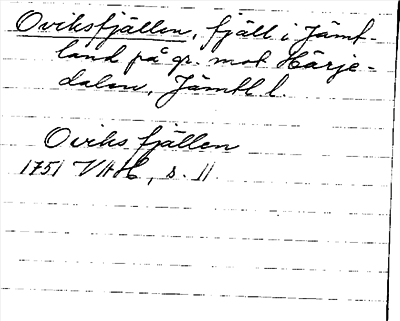 Oviksfjällen, fjäll i Jämt-
land på gr. mot Härje-
dalen, Jämtl l
Oviks fjällen
1751 VAH, s. 11.